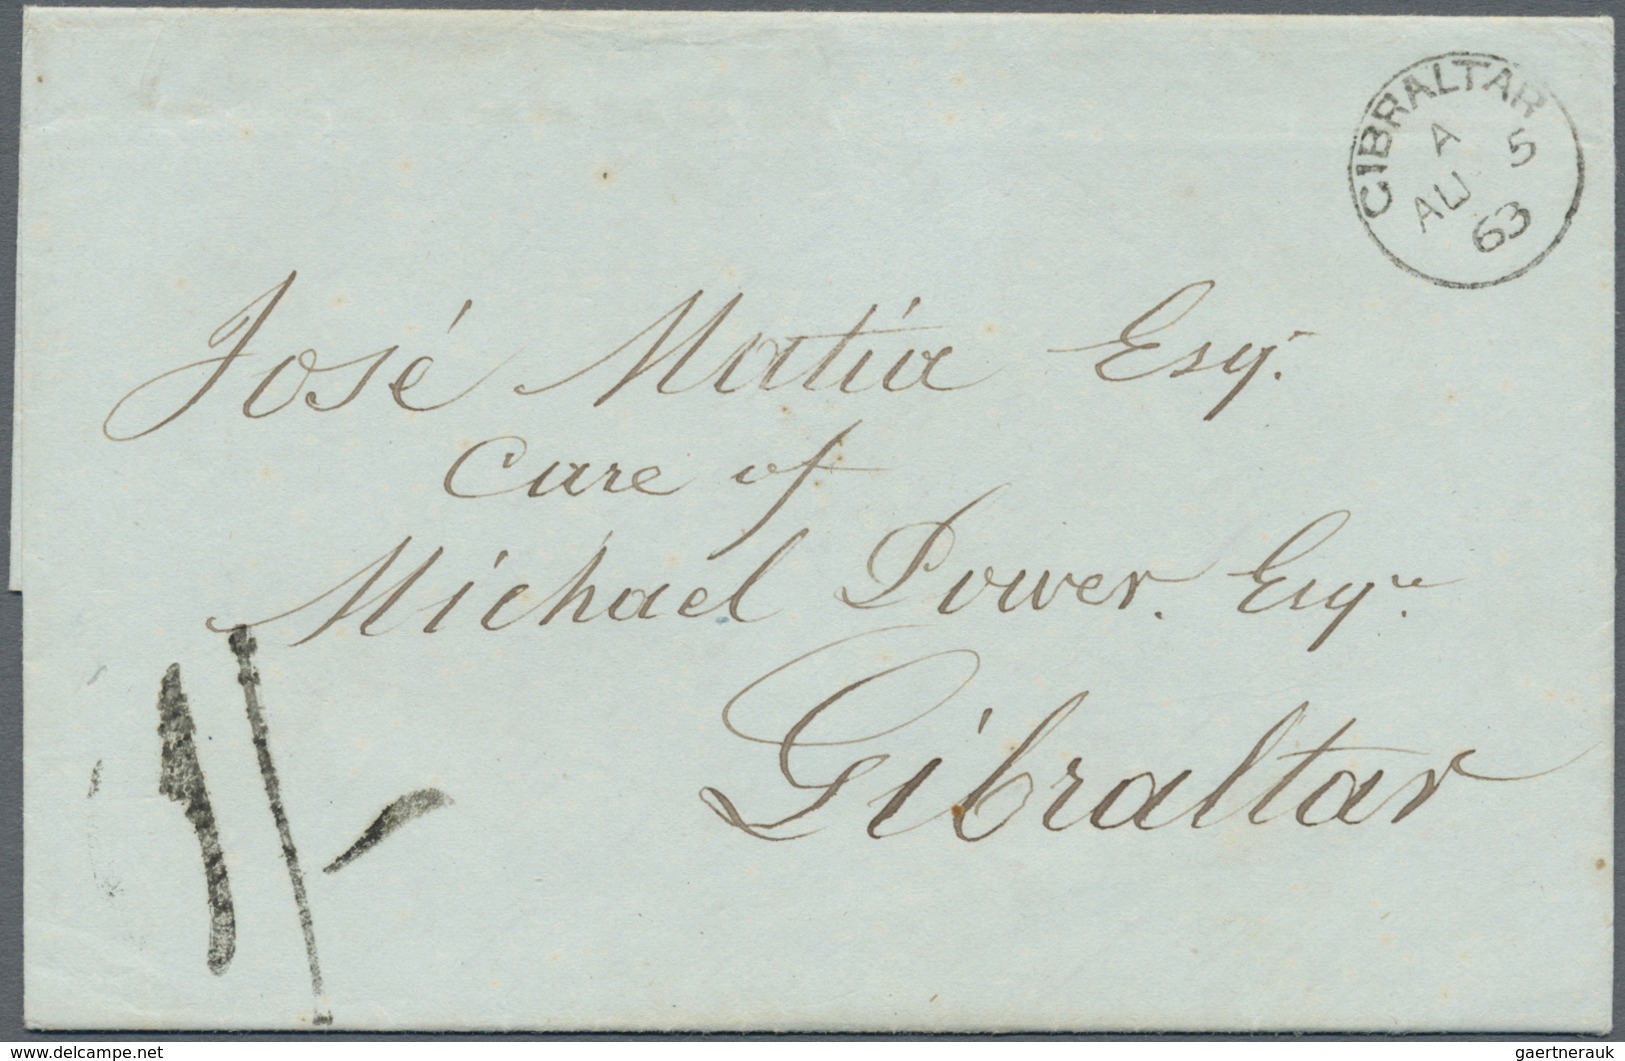 GIBRALTAR
A 5
AU
63
José Matia Esqr.
Care of
Michael Power. Esqre.
Gibraltar
1/-
www.delcampe.net
gaertnerauk